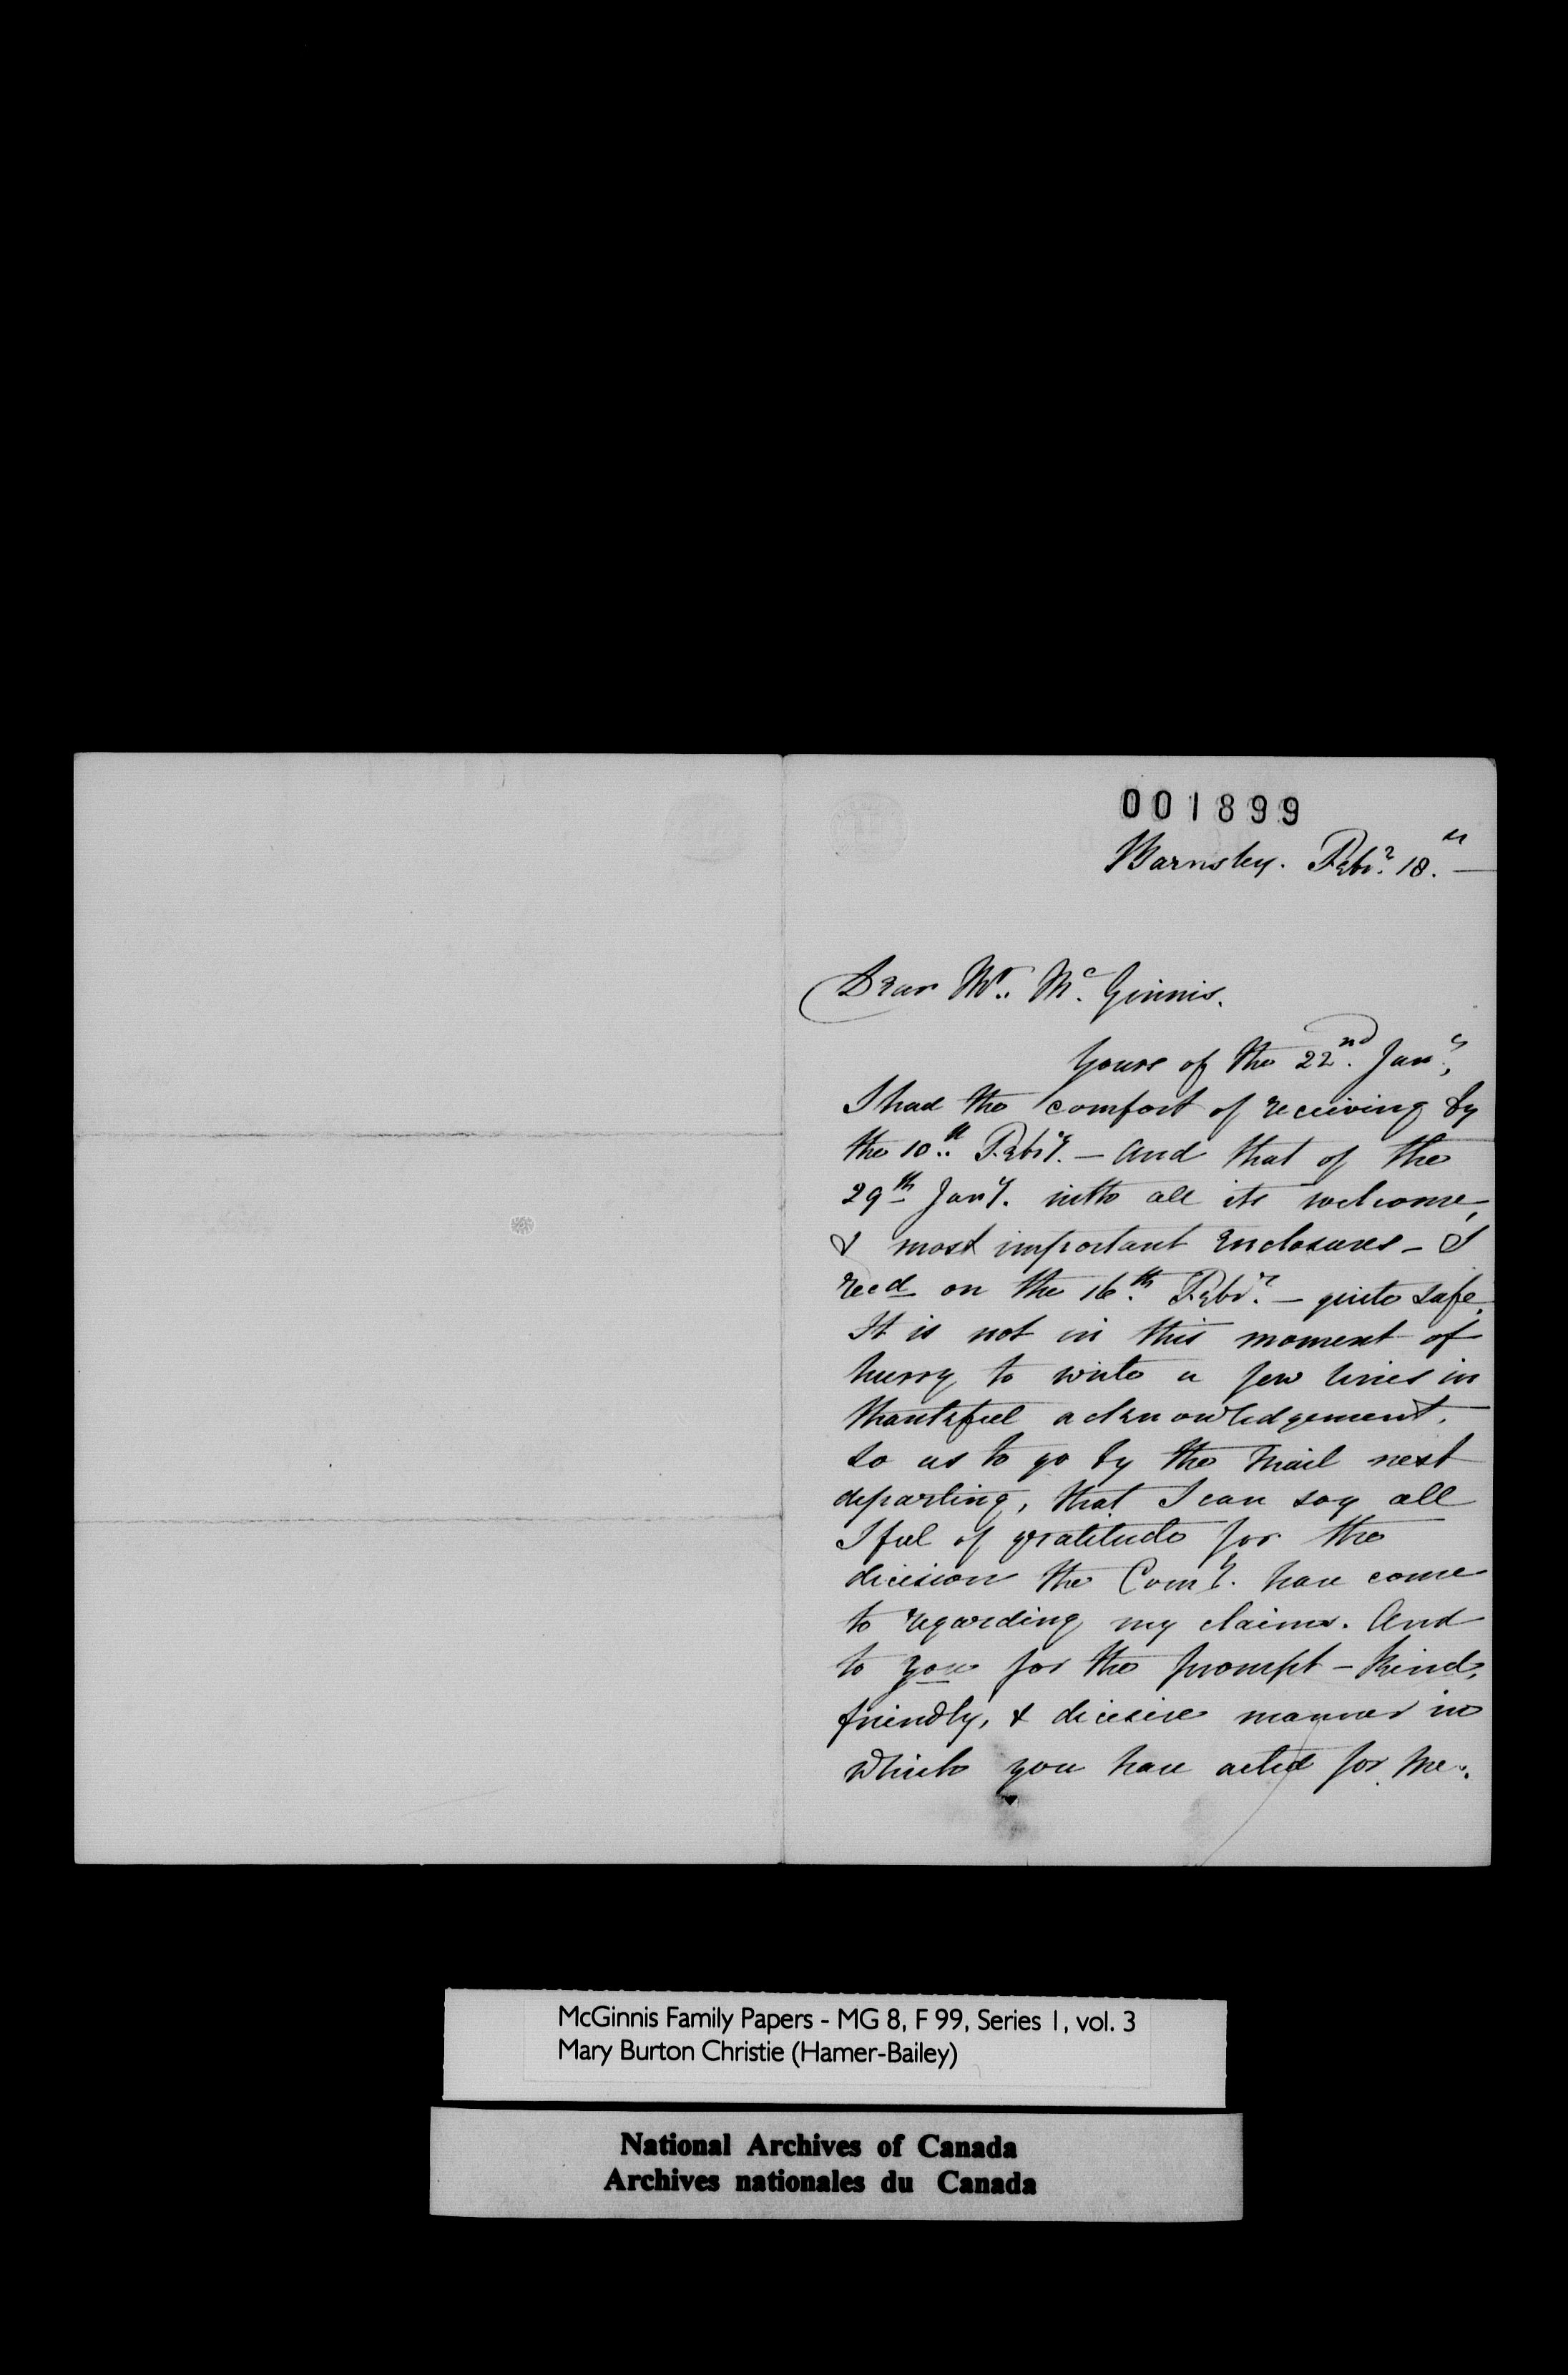 001899
Barnsley. Febr.y 18.th —
Dear Mr. Mc. Ginnis.
Yours of the 22nd. Jan.y,
I had the comfort of receiving by
the 10.th Febry. — and that of the
29th Jany. with all its welcome,
& most important enclosures — I
recd on the 16.th Febr.y — quite safe.
It is not in this moment of
hurry to write a few lines in
thankful acknowledgement.
so as to go by the Mail next
departing, that I can say all
I feel of gratitude for the
decision the Comy. have come
to regarding my claims. And
to you for the prompt — kind,
friendly, & decisive manner in
which you have acted for me.
McGinnis Family Papers - MG 8, F 99, Series 1, vol. 3
Mary Burton Christie (Hamer-Bailey)
National Archives of Canada
Archives nationales du Canada